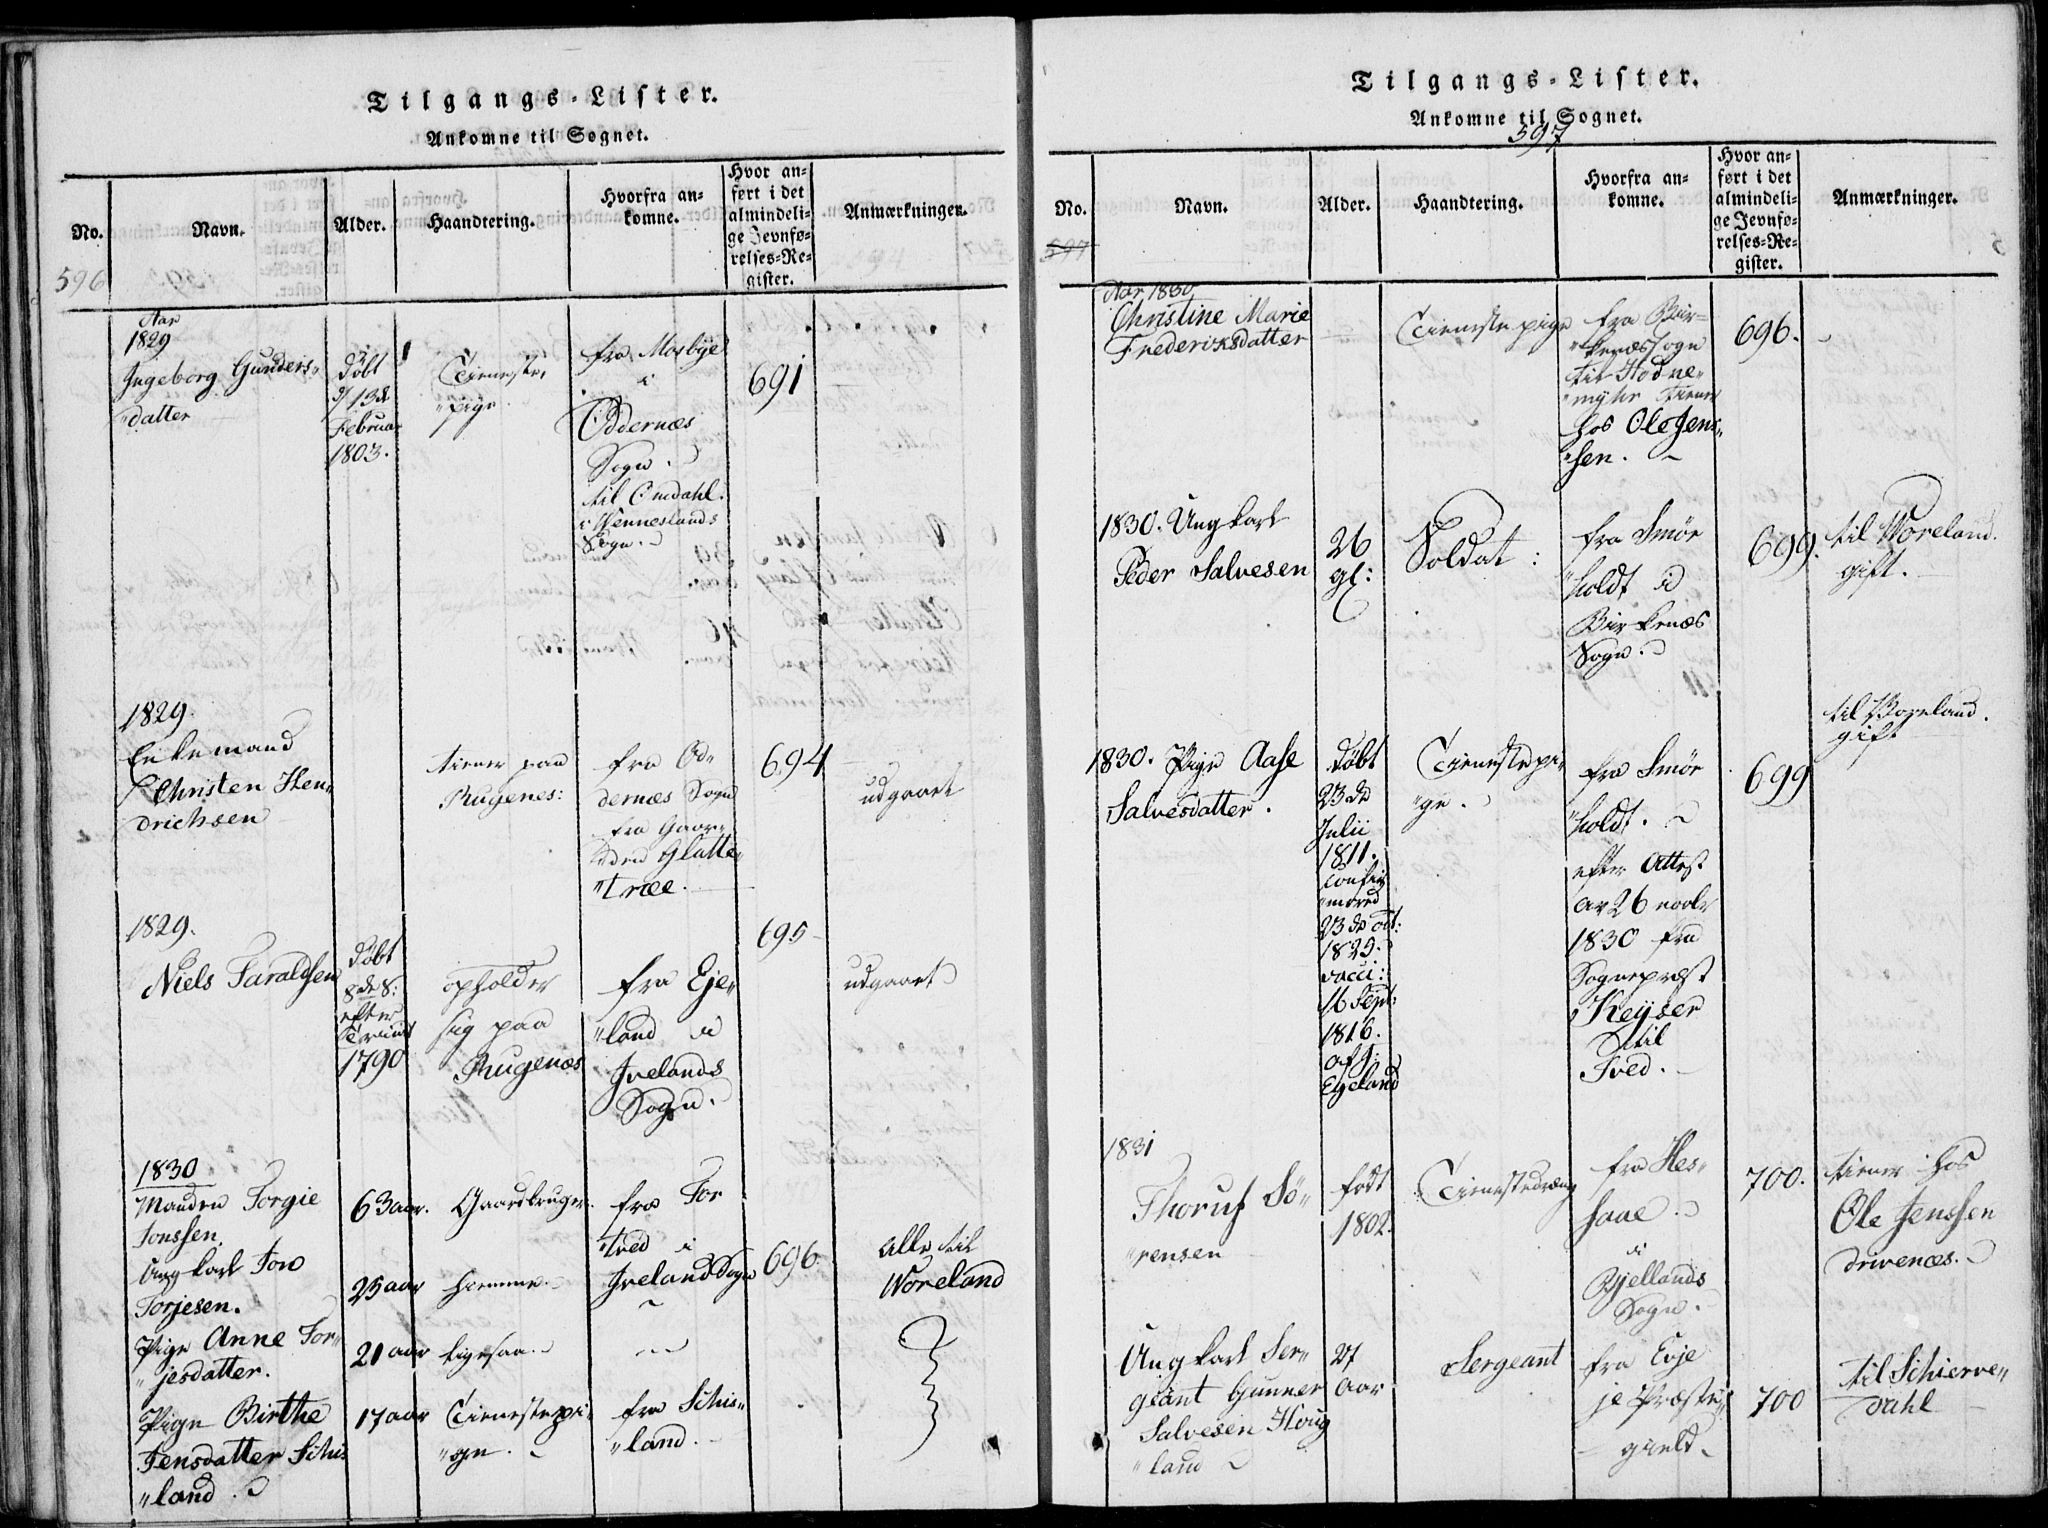 Tilgangs-Lister.
Ankomne til Sognet.
No.
Navn.
Alder.
Haandtering.
Hvorfra an-
komne.
Hvor an-
ført i det
almindeli-
ge Jevnfø-
relses-Re-
gister.
Anmærkninger.
596
Aar
1829
Ingeborg Gunders-
datter
døbt
d/ 13de
Februar
1803.
Tieneste-
pige
fra Mosbye
i
Oddernæs
Sogn.
til Omdahl
i Venneslands
Sogn.
691
1829.
Enkemand
Christen Hen-
drichsen
tiener paa
Rugenes:
fra Od-
dernæs Sogn
fra Gaar-
den Glatte-
træe.
694
udgaaet
1829.
Niels Taraldsen
døbt
8de S:
efter
Trinit
1790
opholder
sig paa
Rugenæs
fra Eje-
land i
Ivelands
Sogn.
695
udgaaet
1830
Manden Torgie
Jonssen.
63 aar.
Gaardbruger.
fra For
tved i
Iveland Sogn
696
Alle til
Woreland
Ungkarl Jon
Torjesen.
25 aar
hiemme.
Pige Anne Tor-
jesdatter.
21 aar
ligesaa.
Pige Birthe
Jensdatter Schis
land.
17 aar
Tienestepi-
ge.
fra Schis-
land.
Tilgangs-Lister.
Ankomne til Sognet.
597
No.
Navn.
Alder.
Haandtering.
Hvorfra an-
komne.
Hvor an-
ført i det
almindeli-
ge Jevnfø-
relses-Re-
gister.
Anmærkninger.
597
Aar 1830
Christine Marie
Frederiksdatter
Tienestepige
fra Bir-
kenæs Sogn
til Hodne-
myhr tiener
hos Ole Jens-
sen.
696.
1830. Ungkarl
Peder Salvesen
26
gl:
Soldat:
fra Smør
holdt i
Birkenæs
Sogn.
699.
til Woreland.
gift.
1830. Pige Aase
Salvesdatter.
døbt
23de
Julii
1811.
confir
mered
23de oct:
1829.
vacci:
16 Sept:
1816.
af J:
Egeland
Tienestepi-
ge.
fra Smør
holdt.
efter Attest
av 26 novbr
1830 fra
Sognepræst
Keyser
til
Tved.
699
til Woreland.
gift
1831
Thoruf Sö-
rensen
født
1802.
Tienestedreng
fra Hes-
saae.
i
Bjellands
Sogn.
700.
tiener hos
Ole Jenssen
Drivenæs.
Ungkarl Ser-
geant Gunner
Salvesen Houg
land
27
Aar
Sergeant
fra Evje
je Præste-
gield
700
til Schierve-
dahl